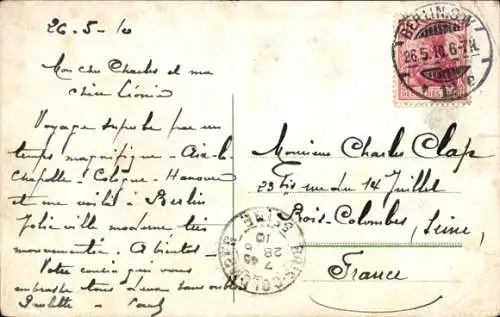 26-5-10
Mon cher Charles et ma
chère Léonie
Voyage superbe par un
temps magnifique - Aix-la-
Chapelle - Cologne - Hanovre
et me voilà à Berlin
Jolie ville moderne très
mouvementée. A bientôt -
Votre cousin qui vous
embrasse tous deux sans oublier
Paulette - Paul
BERLIN S.W.
26.5.10.6-7N.
Monsieur Charles Clap
23 bis rue du 14 Juillet
Bois-Colombes, Seine,
France
BOIS-COLOMBES
SEINE
7 45
28 5
10